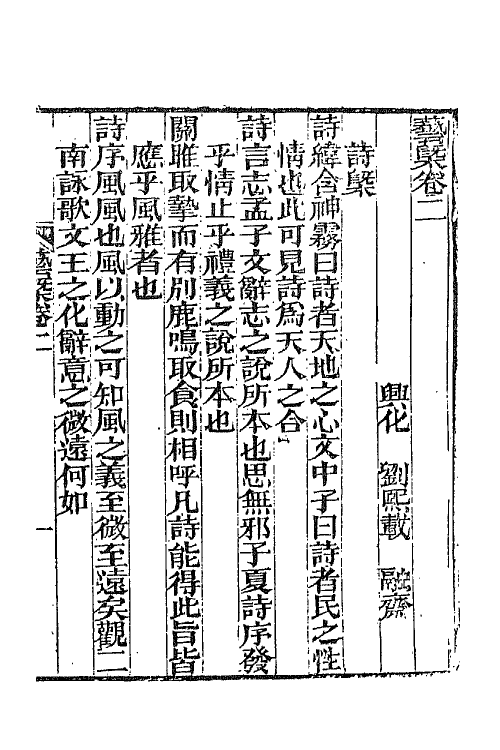 藝槩卷二
興化　劉熙載　融齋
詩槩
詩緯含神霧曰詩者天地之心文中子曰詩者民之性
情也此可見詩爲天人之合
詩言志孟子文辭志之說所本也思無邪子夏詩序發
乎情止乎禮義之說所本也
關雎取摯而有別鹿鳴取食則相呼凡詩能得此旨皆
應乎風雅者也
詩序風風也風以動之可知風之義至微至遠矣觀二
南詠歌文王之化辭意之微遠何如
藝槩卷二
一